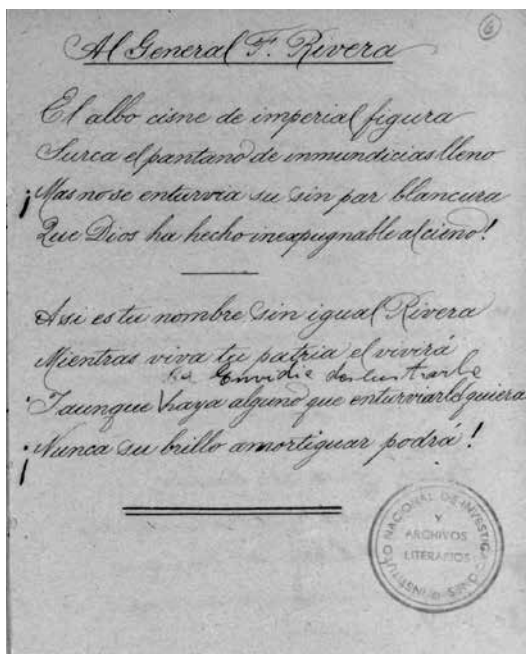 6
Al General F. Rivera
El albo cisne de imperial figura
Surca el pantano de inmundicias lleno
¡Mas no se enturvia su sin par blancura
Que Dios ha hecho inexpugnable al cieno!
Asi es tu nombre sin igual Rivera
Mientras viva tu patria el vivirá
la Envidia deslustrarle
I aunque haya alguno que enturviarle quiera
¡Nunca su brillo amortiguar podrá!
INSTITUTO NACIONAL DE INVESTIGACIONES
Y
ARCHIVOS
LITERARIOS